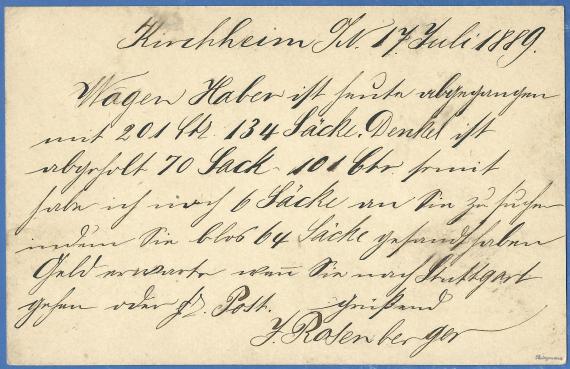 Kirchheim /N. 17. Juli 1889.
Wagen Haber ist heute abgegangen
mit 201 Ctr. 134 Säcke. Denkel ist
abgeholt 70 Sack - 101 Ctr. somit
habe ich noch 6 Säcke an Sie zu suchen
indem Sie blos 64 Säcke gesandt haben
Geld erwarte wen̄ Sie nach Stuttgart
gehen oder pr. Post. grüßend
J. Rosenberger